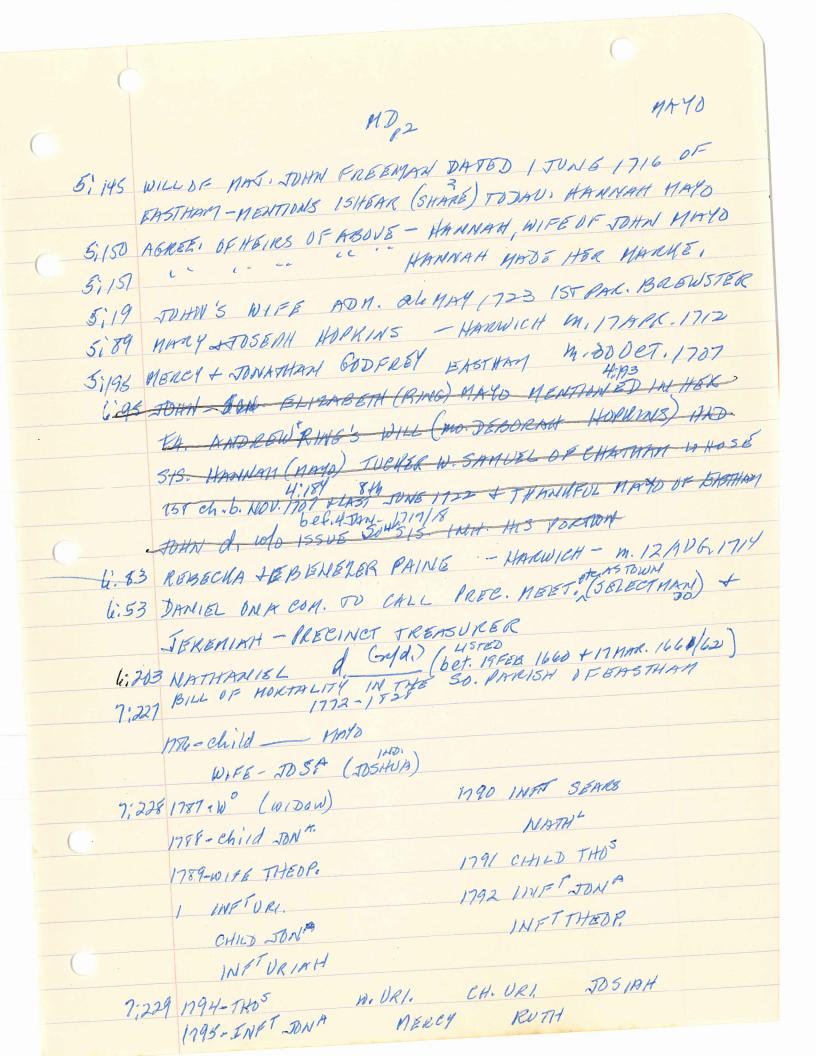 MD p2 MAYO
5:145 WILL OF MAJ. JOHN FREEMAN DATED 1 JUNE 1716 OF
EASTHAM - MENTIONS 1 SHEAR (SHARE?) TO DAU. HANNAH MAYO
5:150 AGREE. OF HEIRS OF ABOVE - HANNAH, WIFE OF JOHN MAYO
5:151 " " " " " " HANNAH MADE HER MARKE.
5:19 JOHN'S WIFE ADM. 26 MAY 1723 1ST PAR. BREWSTER
5:89 MARY & JOSEPH HOPKINS - HARWICH m. 17 APR. 1712
5:196 MERCY & JONATHAN GODFREY EASTHAM m. 30 OCT. 1707
4:193
6:95 JOHN - ELIZABETH (RING) MAYO MENTIONED IN HER
FA. ANDREW RING'S WILL (mo. DEBORAH HOPKINS) HAD
SIS. HANNAH (MAYO) TUCKER W. SAMUEL OF CHATHAM WHOSE
4:184 8th
1ST ch. b. NOV. 1707 & LAST JUNE 1722 & THANKFUL MAYO OF EASTHAM
bef. 4 JAN. 1717/8
JOHN d. w/o ISSUE SIS INH. HIS PORTION
6:83 REBECKA & EBENEZER PAINE - HARWICH - m. 12 AUG. 1714
6:53 DANIEL ON A COM. TO CALL PREC. MEET. etc. AS TOWN (SELECTMAN) &
JEREMIAH - PRECINCT TREASURER
6:203 NATHANIEL d. (Sy/di) (LISTED bet. 19 FEB 1660 & 17 MAR. 1661/62)
7:227 BILL OF MORTALITY IN THE SO. PARISH OF EASTHAM
1772-1828
1786 - child ___ MAYO
WIFE - JOSA (JOSHUA) IND.
7:228 1787 - WO (WIDOW) 1790 INFT SEARS
1788 - child JONA. NATHL
1789 - WIFE THEOP. 1791 CHILD THOS
1 INFT URI. 1792 INFT JONA
CHILD JONA INFT THEOP.
INFT URIAH
7:229 1794 - THOS W. URI. CH. URI. JOSIAH
1795 - INFT JONA MERCY RUTH